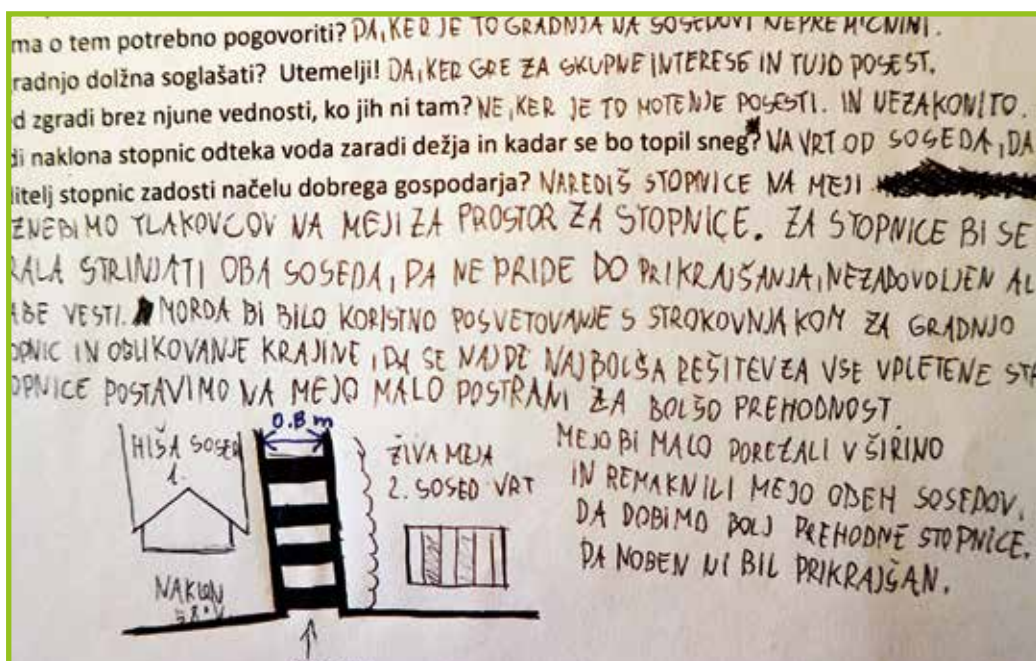 ma o tem potrebno pogovoriti? DA, KER JE TO GRADNJA NA SOSEDOVI NEPREMIČNINI.
radnjo dolžna soglašati? Utemelji! DA, KER GRE ZA SKUPNE INTERESE IN TUJO POSEST.
d zgradi brez njune vednosti, ko jih ni tam? NE, KER JE TO MOTENJE POSESTI. IN NEZAKONITO.
di naklona stopnic odteka voda zaradi dežja in kadar se bo topil sneg? NA VRT OD SOSEDA, DA
litelj stopnic zadosti načelu dobrega gospodarja? NAREDIŠ STOPNICE NA MEJI
ZNEBIMO TLAKOVCOV NA MEJI ZA PROSTOR ZA STOPNICE. ZA STOPNICE BI SE
RALA STRINJATI OBA SOSEDA, DA NE PRIDE DO PRIKRAJŠANJA, NEZADOVOLJEN AL
ABE VESTI. MORDA BI BILO KORISTNO POSVETOVANJE S STROKOVNJAKOM ZA GRADNJO
OPNIC IN OBLIKOVANJE KRAJINE, DA SE NAJDE NAJBOLŠA REŠITEV ZA VSE VPLETENE STR
OPNICE POSTAVIMO NA MEJO MALO POSTRANI ZA BOLŠO PREHODNOST.
0.8 m
HIŠA SOSED
1.
ŽIVA MEJA
2. SOSED VRT
NAKLON
MEJO BI MALO POREZALI V ŠIRINO
IN REMAKNILI MEJO OBEH SOSEDOV,
DA DOBIMO BOLJ PREHODNE STOPNICE.
DA NOBEN NI BIL PRIKRAJŠAN.